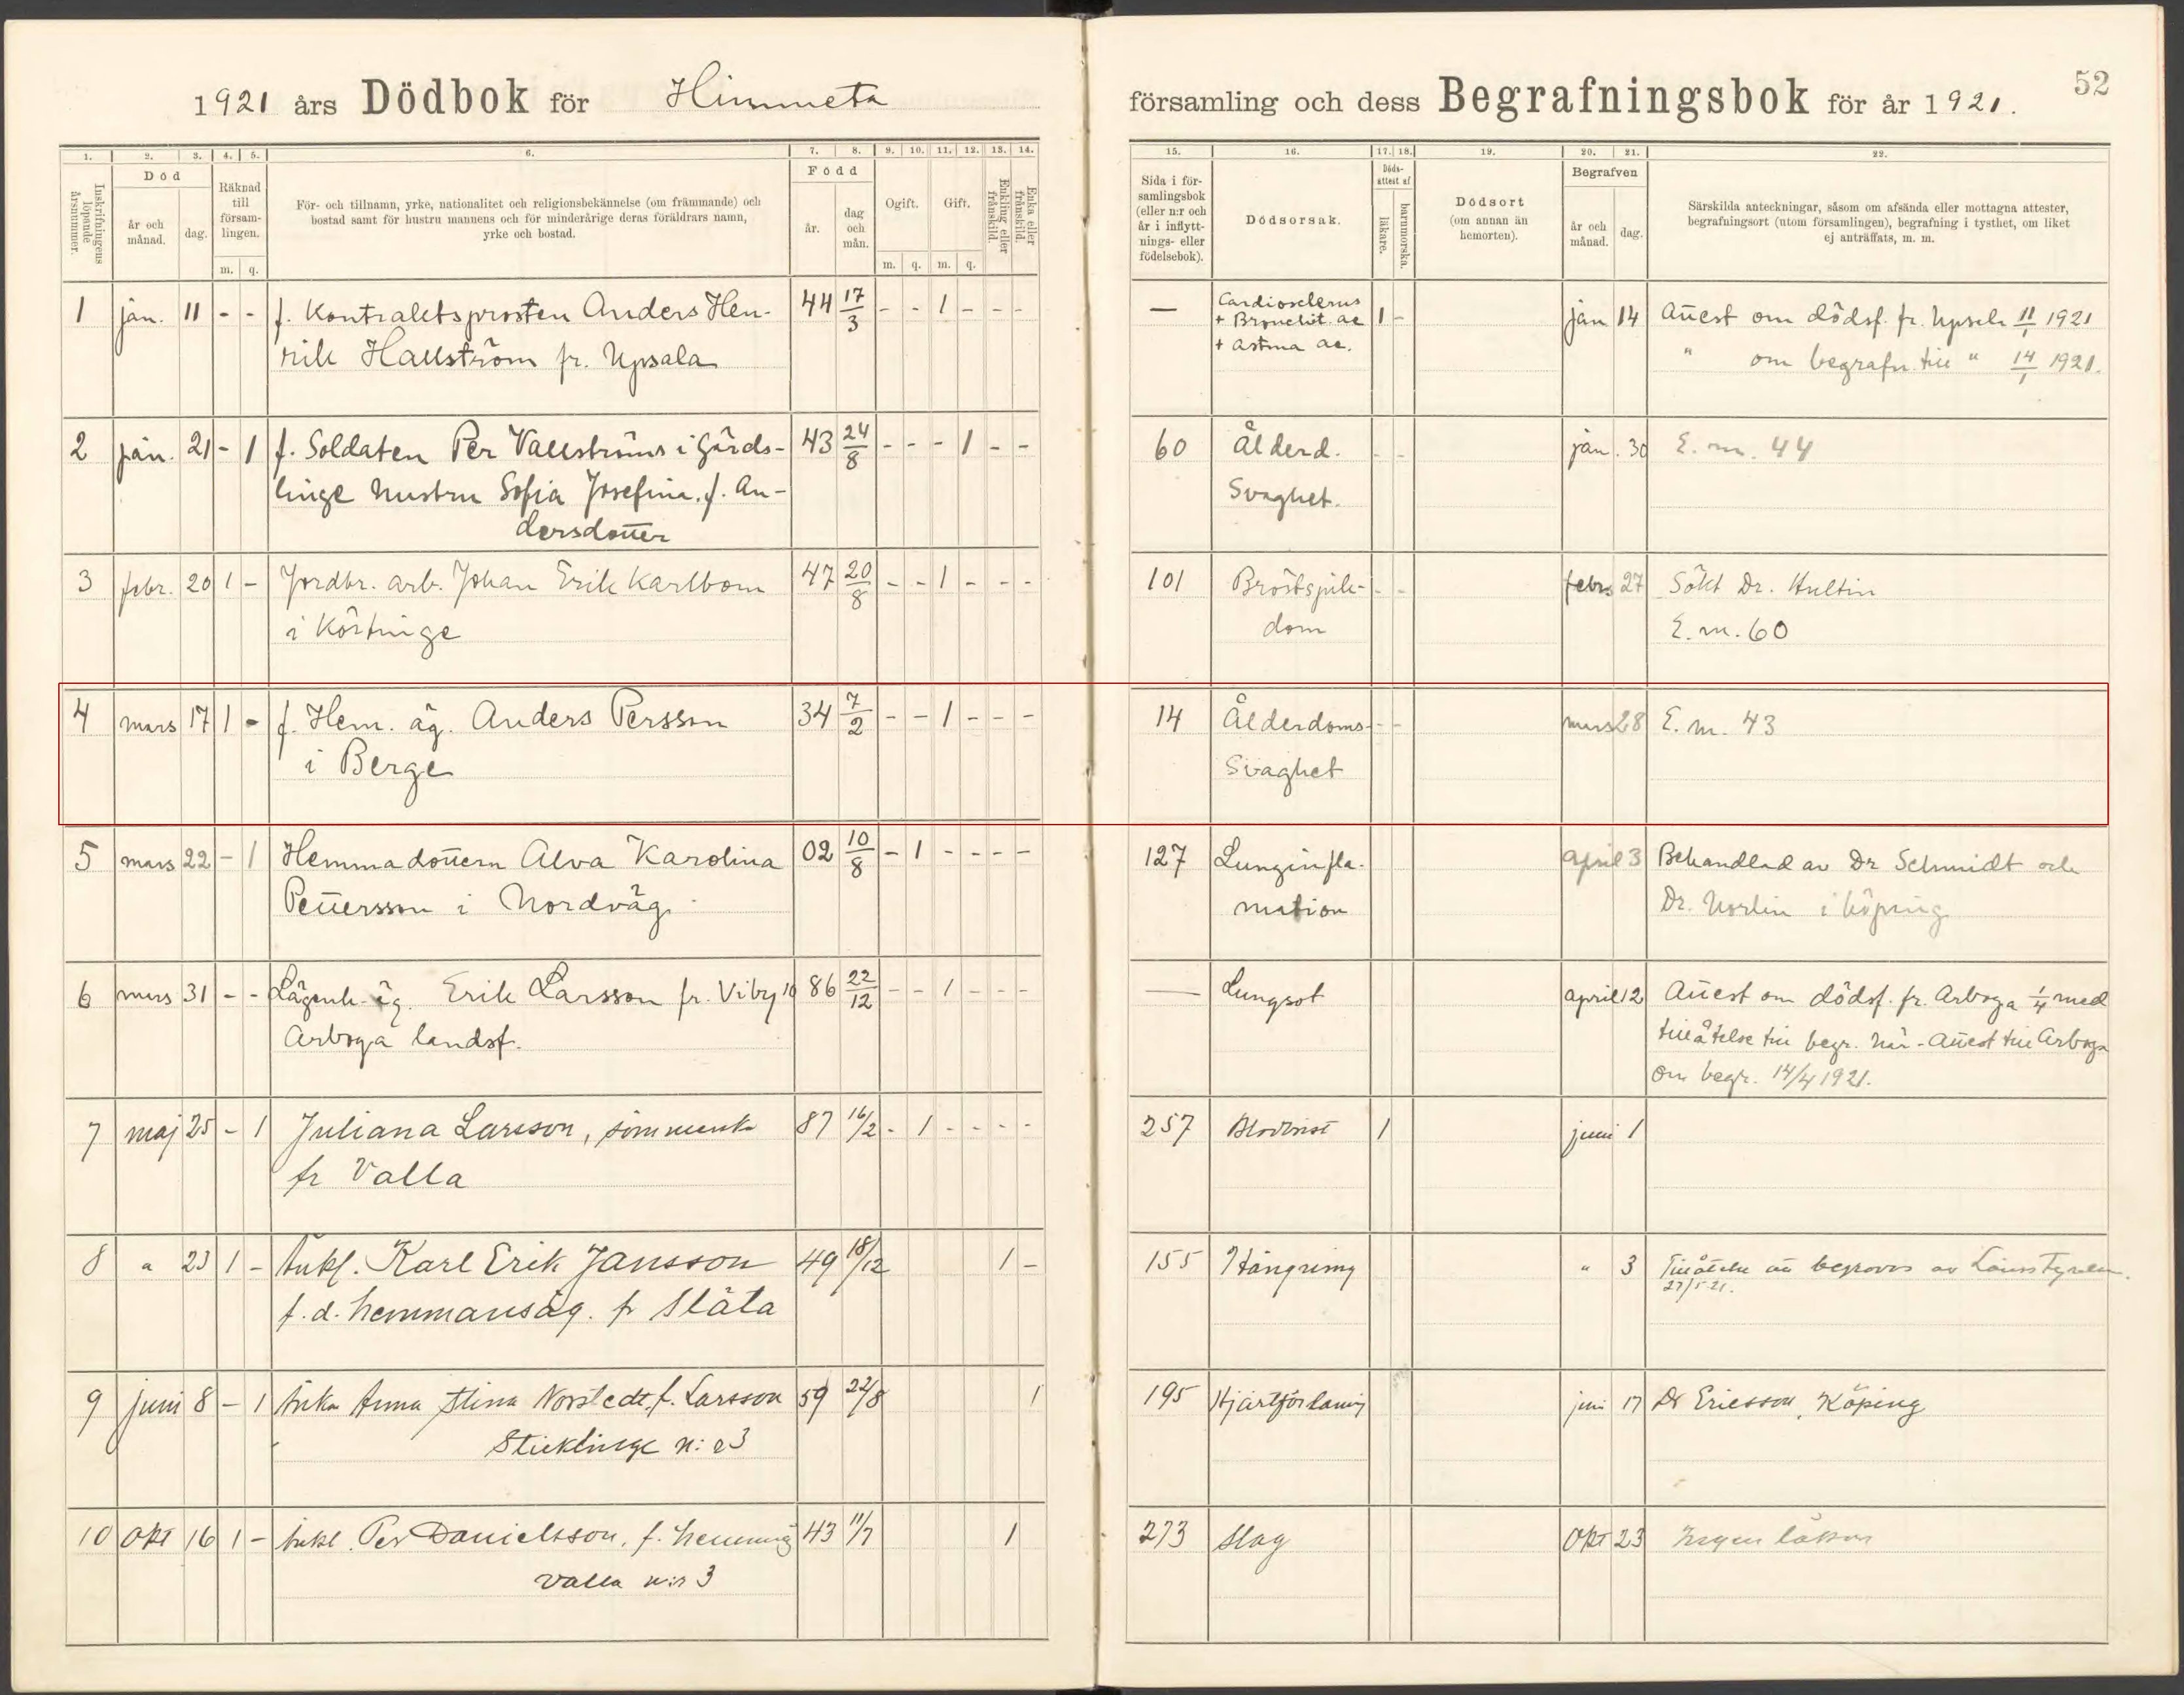 52
1921 års Dödbok för Himmeta
församling och dess Begrafningsbok för år 1921.
1. 2. 3. 4. 5. 6. 7. 8. 9. 10. 11. 12. 13. 14.
15. 16. 17. 18. 19. 20. 21. 22.
Inskrifningens löpande årsnummer.
Död
år och månad.
dag.
Räknad till församlingen.
m. q.
För- och tillnamn, yrke, nationalitet och religionsbekännelse (om främmande) och
bostad samt för hustru mannens och för minderårige deras föräldrars namn,
yrke och bostad.
Född
år.
dag och mån.
Ogift.
m. q.
Gift.
m. q.
Enkling eller frånskild.
Enka eller frånskild.
Sida i församlingsbok (eller n:r och år i inflyttnings- eller födelsebok).
Dödsorsak.
Döds-attest af
läkare.
barnmorska.
Dödsort
(om annan än hemorten).
Begrafven
år och månad.
dag.
Särskilda anteckningar, såsom om afsända eller mottagna attester,
begrafningsort (utom församlingen), begrafning i tysthet, om liket
ej anträffats, m. m.
1 jan. 11 - - f. Kontraktsprosten Anders Hen- 44 17/3 - - 1 - - -
rik Hallström fr. Upsala
— Cardiosclerus 1 - jan 14 Attest om dödsf. fr. Upsala 11/1 1921
+ Bronchit. ac
+ Astma ac.
" om begrafn. till " 14/1 1921.
2 jan. 21 - 1 f. Soldaten Per Vallströms i Gärds- 43 24/8 - - - 1 - -
linge hustru Sofia Josefina, f. An-
dersdotter
60 Ålderd. - - jan. 30 E. m. 44
Svaghet.
3 febr. 20 1 - Jordbr. arb. Johan Erik Karlbom 47 20/8 - - 1 - - -
i Körtinge
101 Bröstsjuk- - - febr 27 Sökt Dr. Hultin
dom E. m. 60
4 mars 17 1 - f. Hem. äg. Anders Persson 34 7/2 - - 1 - - -
i Berge
14 Ålderdoms- - - mars 28 E. m. 43
Svaghet
5 mars 22 - 1 Hemmadottern Alva Karolina 02 10/8 - 1 - - - -
Pettersson i Nordväg.
127 Lunginfla- april 3 Behandlad av Dr Schmidt och
mation Dr. Norlin i Köping
6 mars 31 - - Lägenh. äg. Erik Larsson fr. Viby 86 22/12 - - 1 - - -
Arboga landsf.
— Lungsot april 12 Attest om dödsf. fr. Arboga 1/4 med
tillåtelse till begr. här - Attest till Arboga
om begr. 14/4 1921.
7 maj 25 - 1 Juliana Larsson, 87 16/2 - 1 - - - -
fr Valla
257 Blodbrist 1 juni 1
8 " 23 1 - Änkl. Karl Erik Jansson 49 18/12 1 -
f. d. hemmansäg. fr Släta
155 Hängning " 3 Tillåtelse att begravas av Länsstyrelsen.
27/5 21.
9 juni 8 - 1 Änka Anna Stina Norstedt, f. Larsson 59 22/8 1
Sticklinge n:r 3
195 Hjärtförlamn juni 17 Dr Ericsson, Köping
10 Okt 16 1 - Änkl. Per Danielsson, f. hemmäg 43 11/7 1
Valla n:r 3
273 Slag Okt 23 Ingen läkare